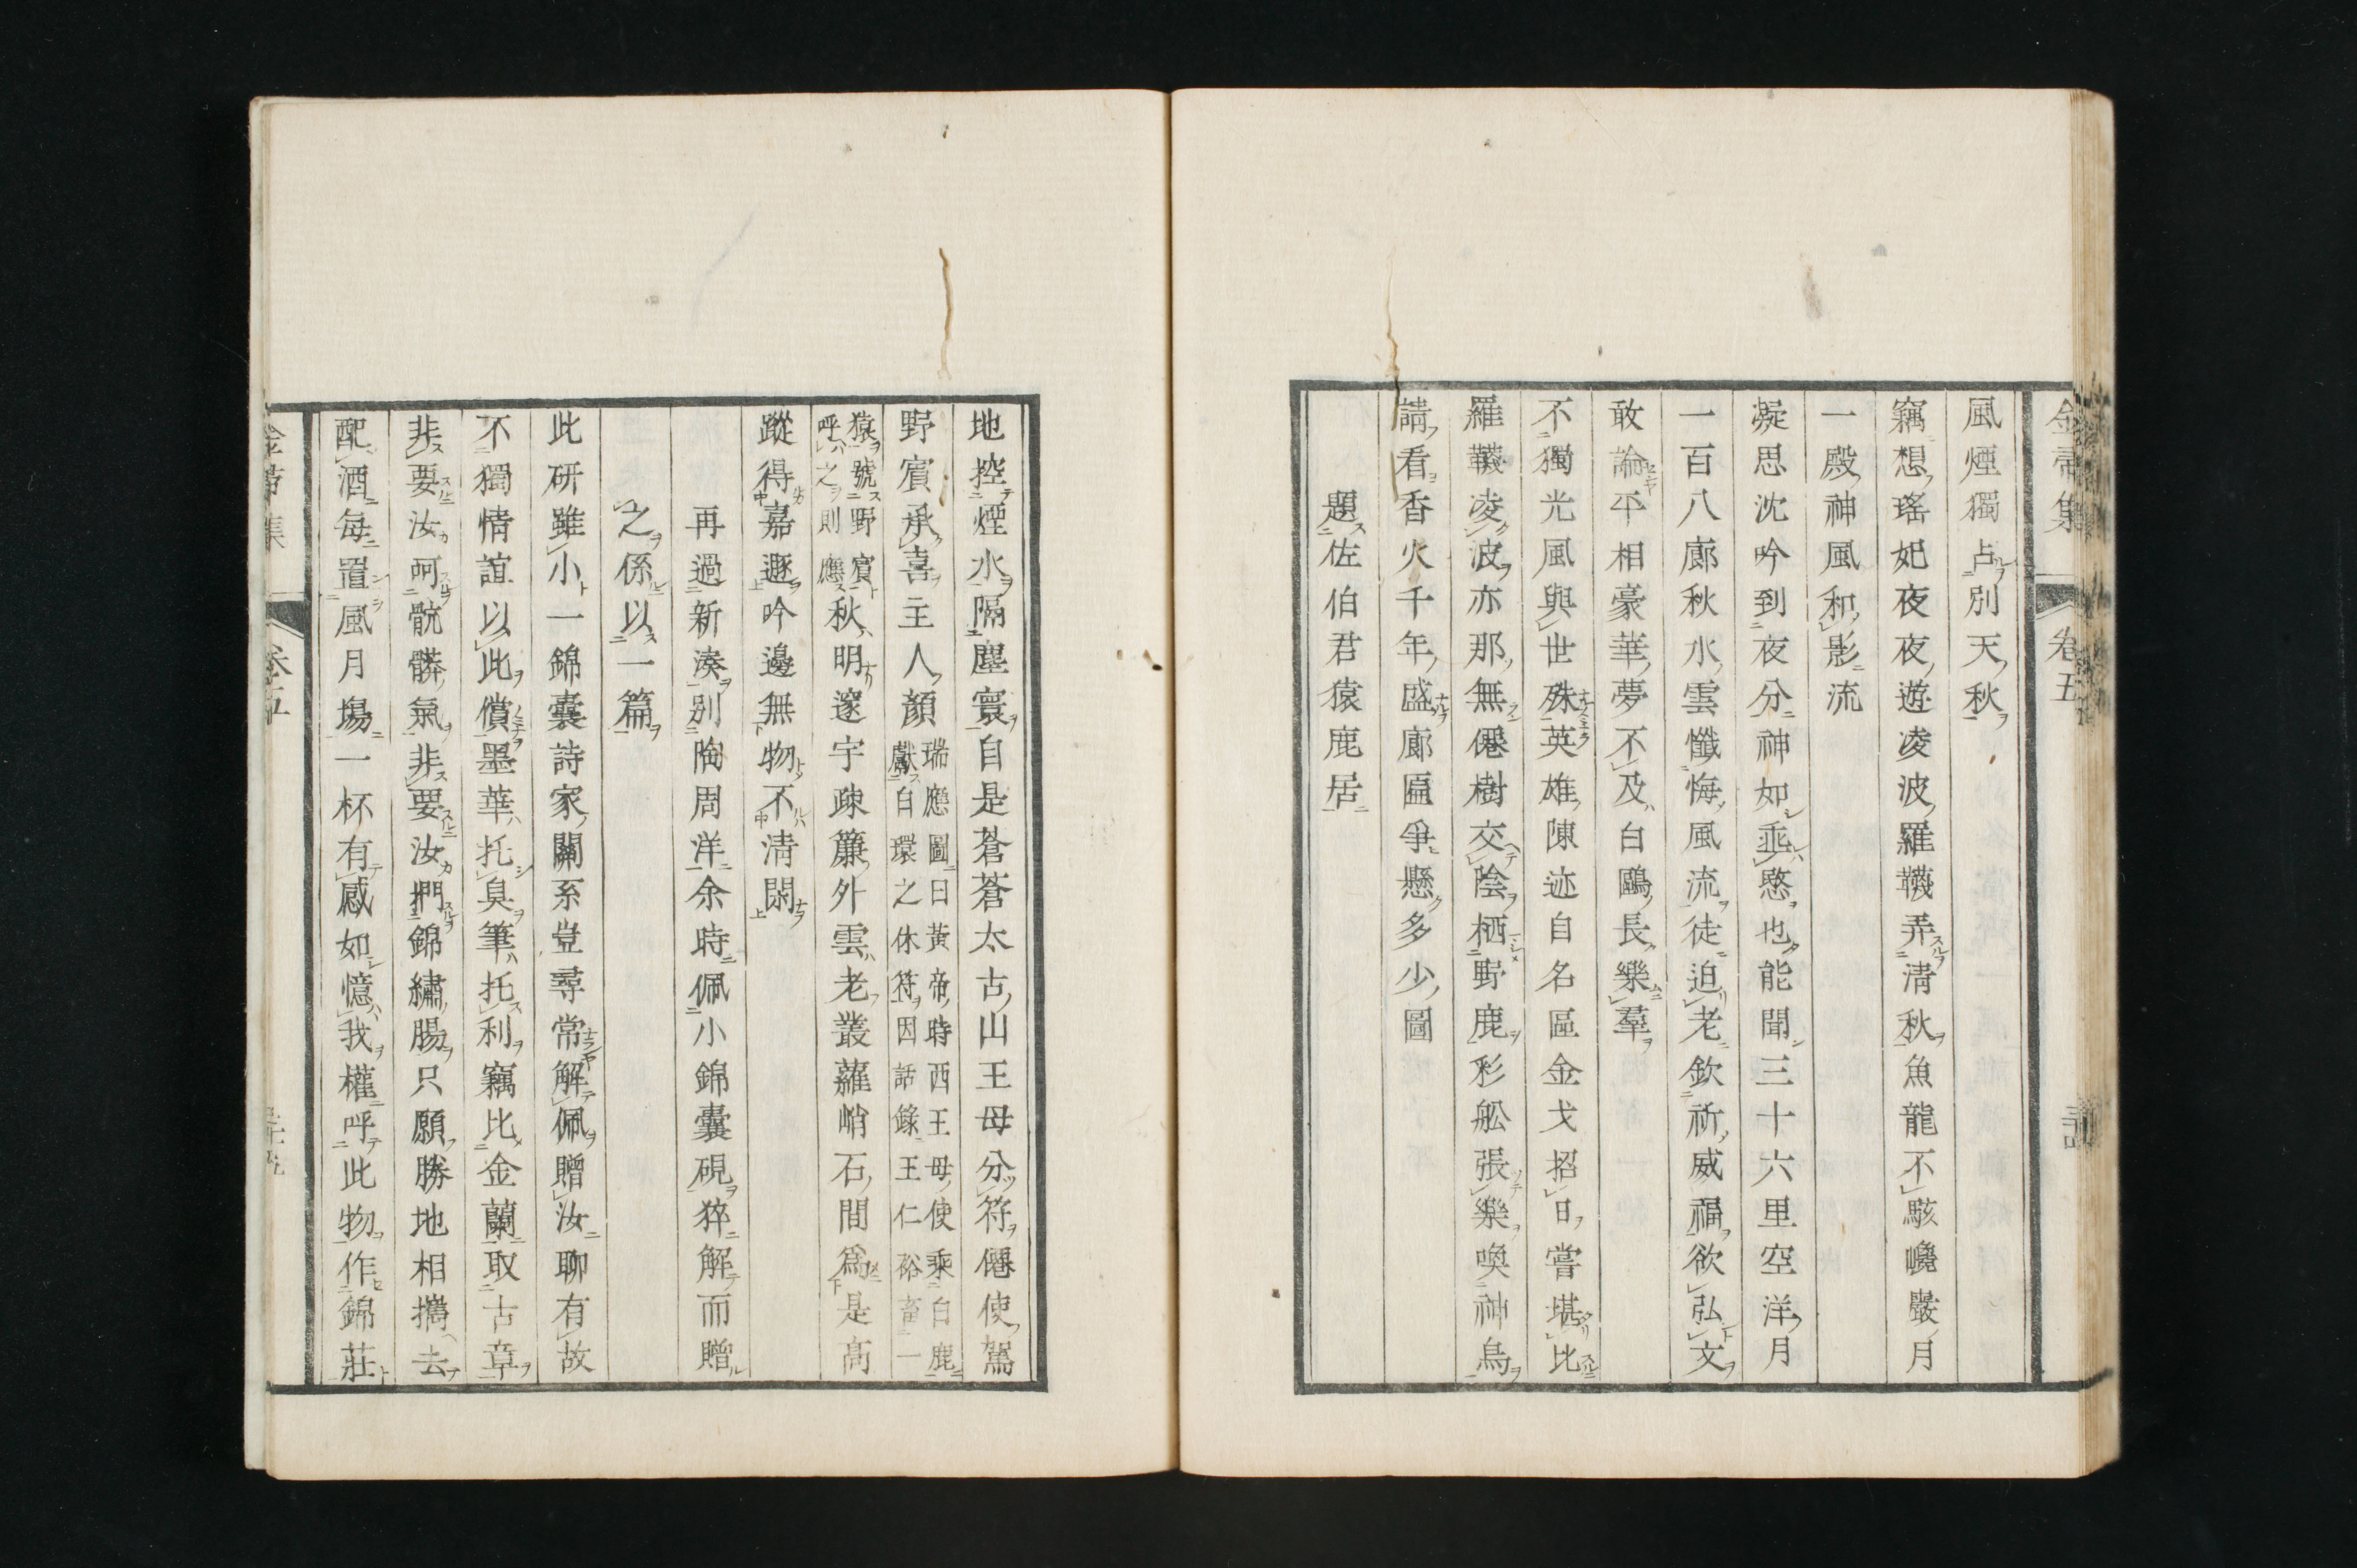 風煙獨占別天秋
竊想瑤妃夜夜遊凌波羅韈弄清秋魚龍不駭巉巖月
一殿神風和影流
凝思沈吟到夜分神如乖愍也能聞三十六里空洋月
一百八廊秋水雲懺悔風流徒迫老欽祈威福欲弘文
敢論平相豪華夢不及白鷗長樂羣
不獨光風與世殊英雄陳迹自名區金戈招日嘗堪比
羅韈凌波亦那無僊樹交陰栖野鹿彩舩張樂喚神烏
請看香火千年盛廊匾爭懸多少圖
題佐伯君猿鹿居
地控煙水隔塵寰自是蒼蒼太古山王母分符僊使駕
野賓承喜主人顏
瑞應圖曰黃帝時西王母使乘白鹿
獻白環之休符因話錄王仁裕畜一
猿號野賓
呼之則應
秋明邃宇疎簾外雲老叢蘿峭石間爲是高
蹤得嘉遯吟邊無物不清閑
再過新湊別陶周洋余時佩小錦囊硯猝解而贈
之係以一篇
此研雖小一錦囊詩家關系豈尋常解佩贈汝聊有故
不獨情誼以此償墨華托臭筆托利竊比金蘭取古章
非要汝呵骯髒氣非要汝捫錦繡腸只願勝地相攜去
配酒每置風月場一杯有感如憶我權呼此物作錦莊
卷五